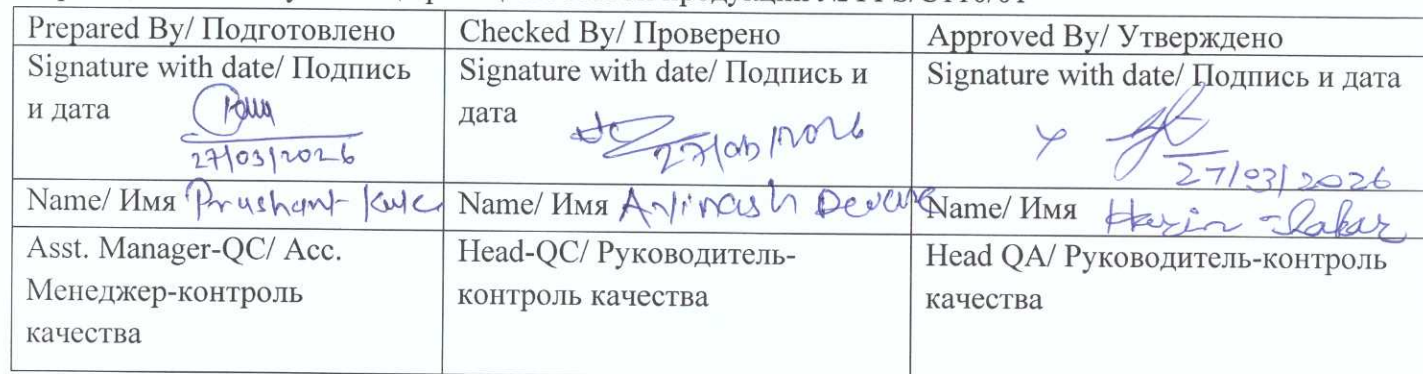 Prepared By/ Подготовлено
Checked By/ Проверено
Approved By/ Утверждено
Signature with date/ Подпись и дата
27/03/2026
Signature with date/ Подпись и дата
27/03/2026
Signature with date/ Подпись и дата
27/03/2026
Name/ Имя Prashant
Name/ Имя Avinash
Name/ Имя
Asst. Manager-QC/ Асс.
Менеджер-контроль
качества
Head-QC/ Руководитель-
контроль качества
Head QA/ Руководитель-контроль
качества